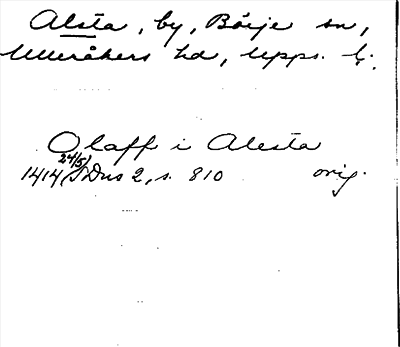 Alsta, by, Börje sn,
Ulleråkers hd, Upps. l.
Olaff i Alesta
1414 24/5 SDns 2, s. 810 orig.